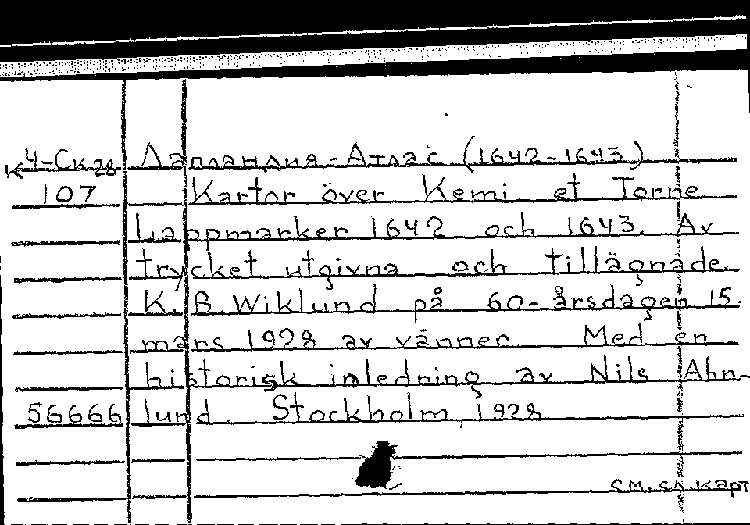 К 4-Ск28 Лапландия-Атлас (1642-1643)
107 Kartor över Kemi et Torne
Lappmarker 1642 och 1643. Av
trycket utgivna och tillägnade
K. B. Wiklund på 60-årsdagen 15
mars 1928 av vänner. Med en
historisk inledning av Nils Ahn-
56666 lund. Stockholm, 1928
см. сл. карт